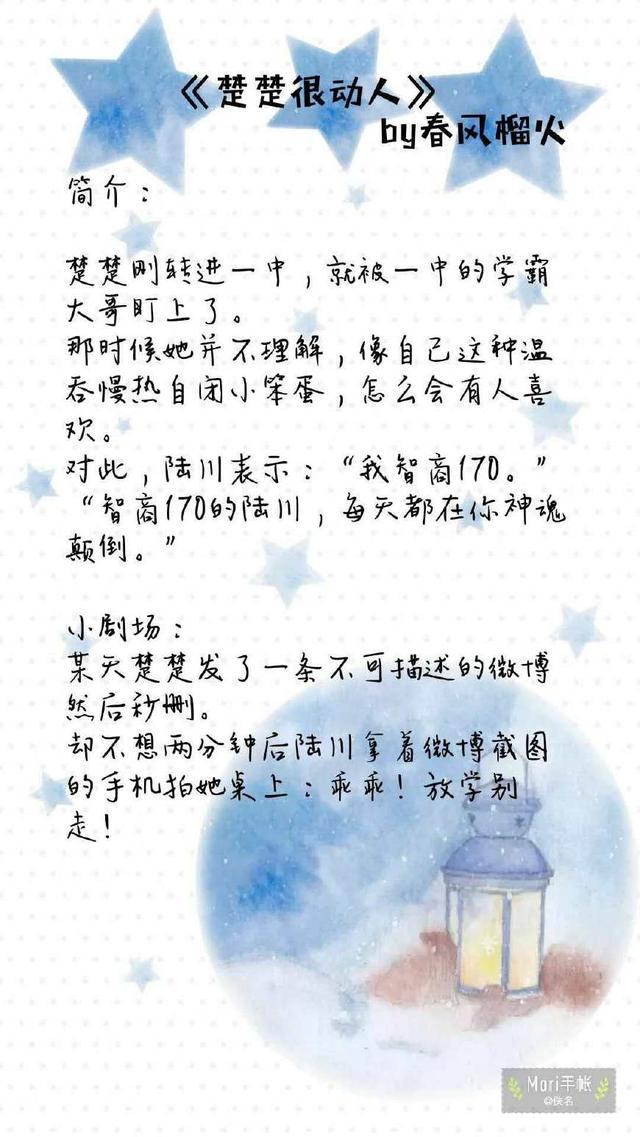 《楚楚很动人》
by春风榴火
简介：
楚楚刚转进一中，就被一中的学霸
大哥盯上了。
那时候她并不理解，像自己这种温
吞慢热自闭小笨蛋，怎么会有人喜
欢。
对此，陆川表示：“我智商170。”
“智商170的陆川，每天都在你神魂
颠倒。”
小剧场：
某天楚楚发了一条不可描述的微博
然后秒删。
却不想两分钟后陆川拿着微博截图
的手机拍她桌上：乖乖！放学别
走！
Mori手帐
@佚名